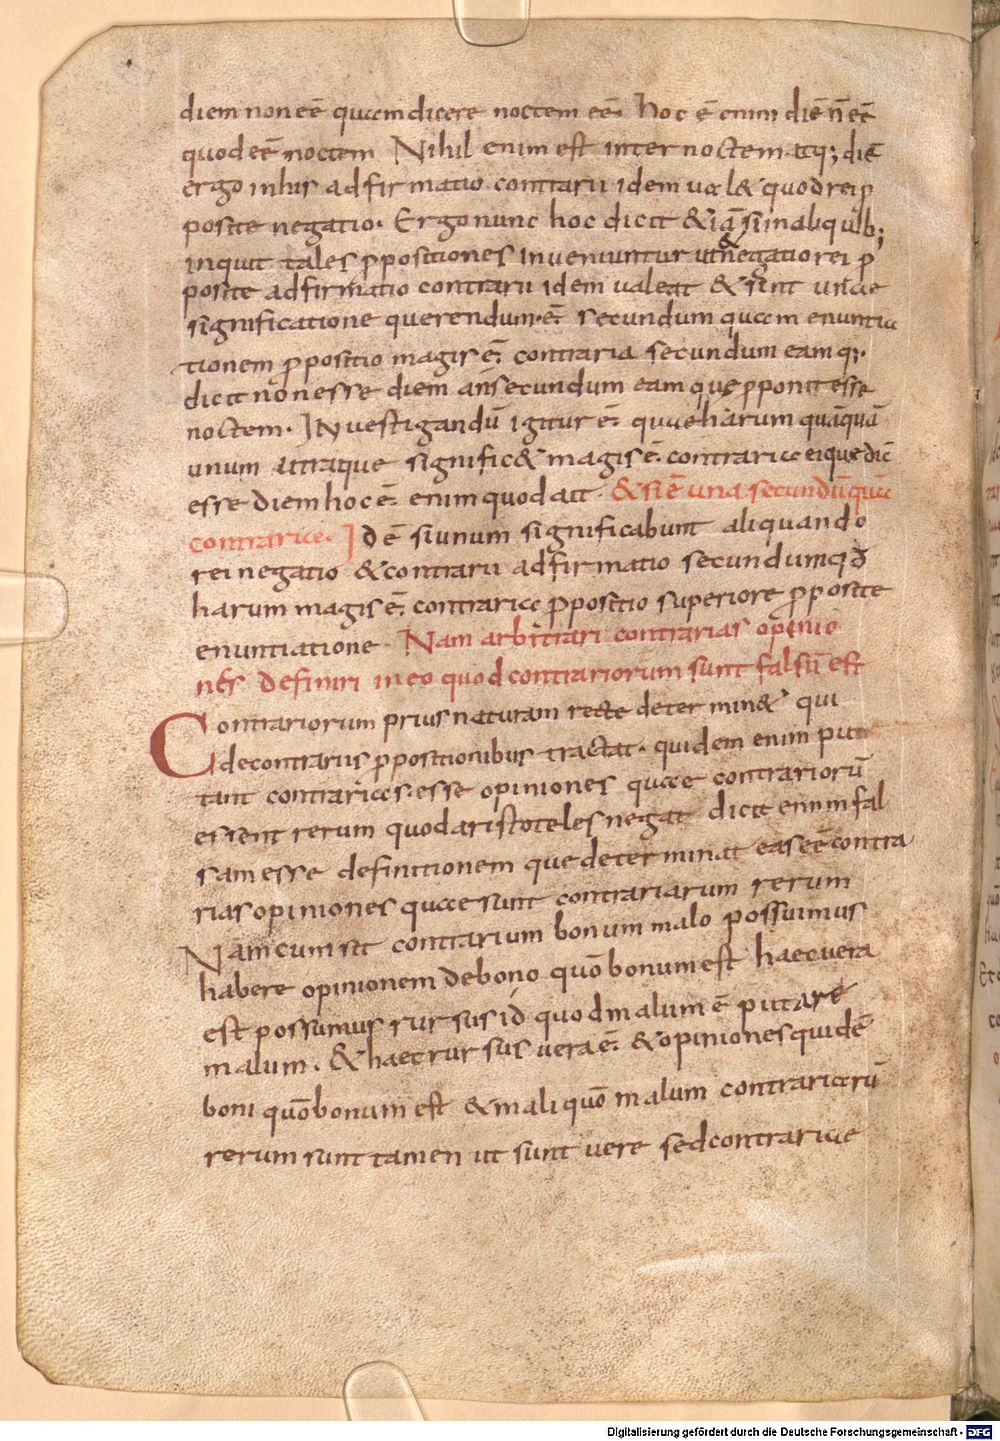 diem non eē quam dicere noctem eē· hoc ē enim diē n̄ eē
quod eē noctem Nihil enim est inter noctem atq; diē
ergo in his adfirmatio contrarii idem ual& quod rei ꝓ
posite negatio· Ergo nunc hoc dicit & iā si in aliquib;
inquit tales ꝓpositiones inueniuntur ut & negatio rei ꝓ
posite adfirmatio contrarii idem ualeat & sint unae
significatione querendum·ē· secundum quam enuntia
tionem ꝓpositio magis ē· contraria secundum eam q;·
dicit nō esse diem an secundum eam quę ꝓponit esse
noctem· INuestigandū igitur ē· quae harum quāquā
unum utraque signific& magis ē· contraria ei que dic̄
esse diem hoc ē· enim quod ait· & si ē una secundū quā
contrariae· Idē si unum significabunt aliquando
rei negatio & contrarii adfirmatio secundum q̄d
harum magis ē· contraria ꝓpositio superiore ꝓposite
enuntiatione· Nam arbitrari contrarias opinio
nes definiri in eo quod contrariorum sunt falsū est
Contrariorum prius naturam recte determin& qui
de contrariis ꝓpositionibus tractat· quidem enim puta
tant contrarias· esse opiniones quae contrariorū
essent rerum quod aristoteles negat dicit enim fal
sam esse definitionem que determinat eas eē contra
rias opiniones quae sunt contrariarum rerum
Nam cum sit contrarium bonum malo possumus
habere opinionem de bono quō bonum est haec uera
est possumus rursus id quod malum ē putare
malum· & haec rursus uera ē· & opiniones quidē
boni quō bonum est & mali quō malum contrariarū
rerum sunt tamen ut sunt uere sed contrariae
Digitalisierung gefördert durch die Deutsche Forschungsgemeinschaft - DFG